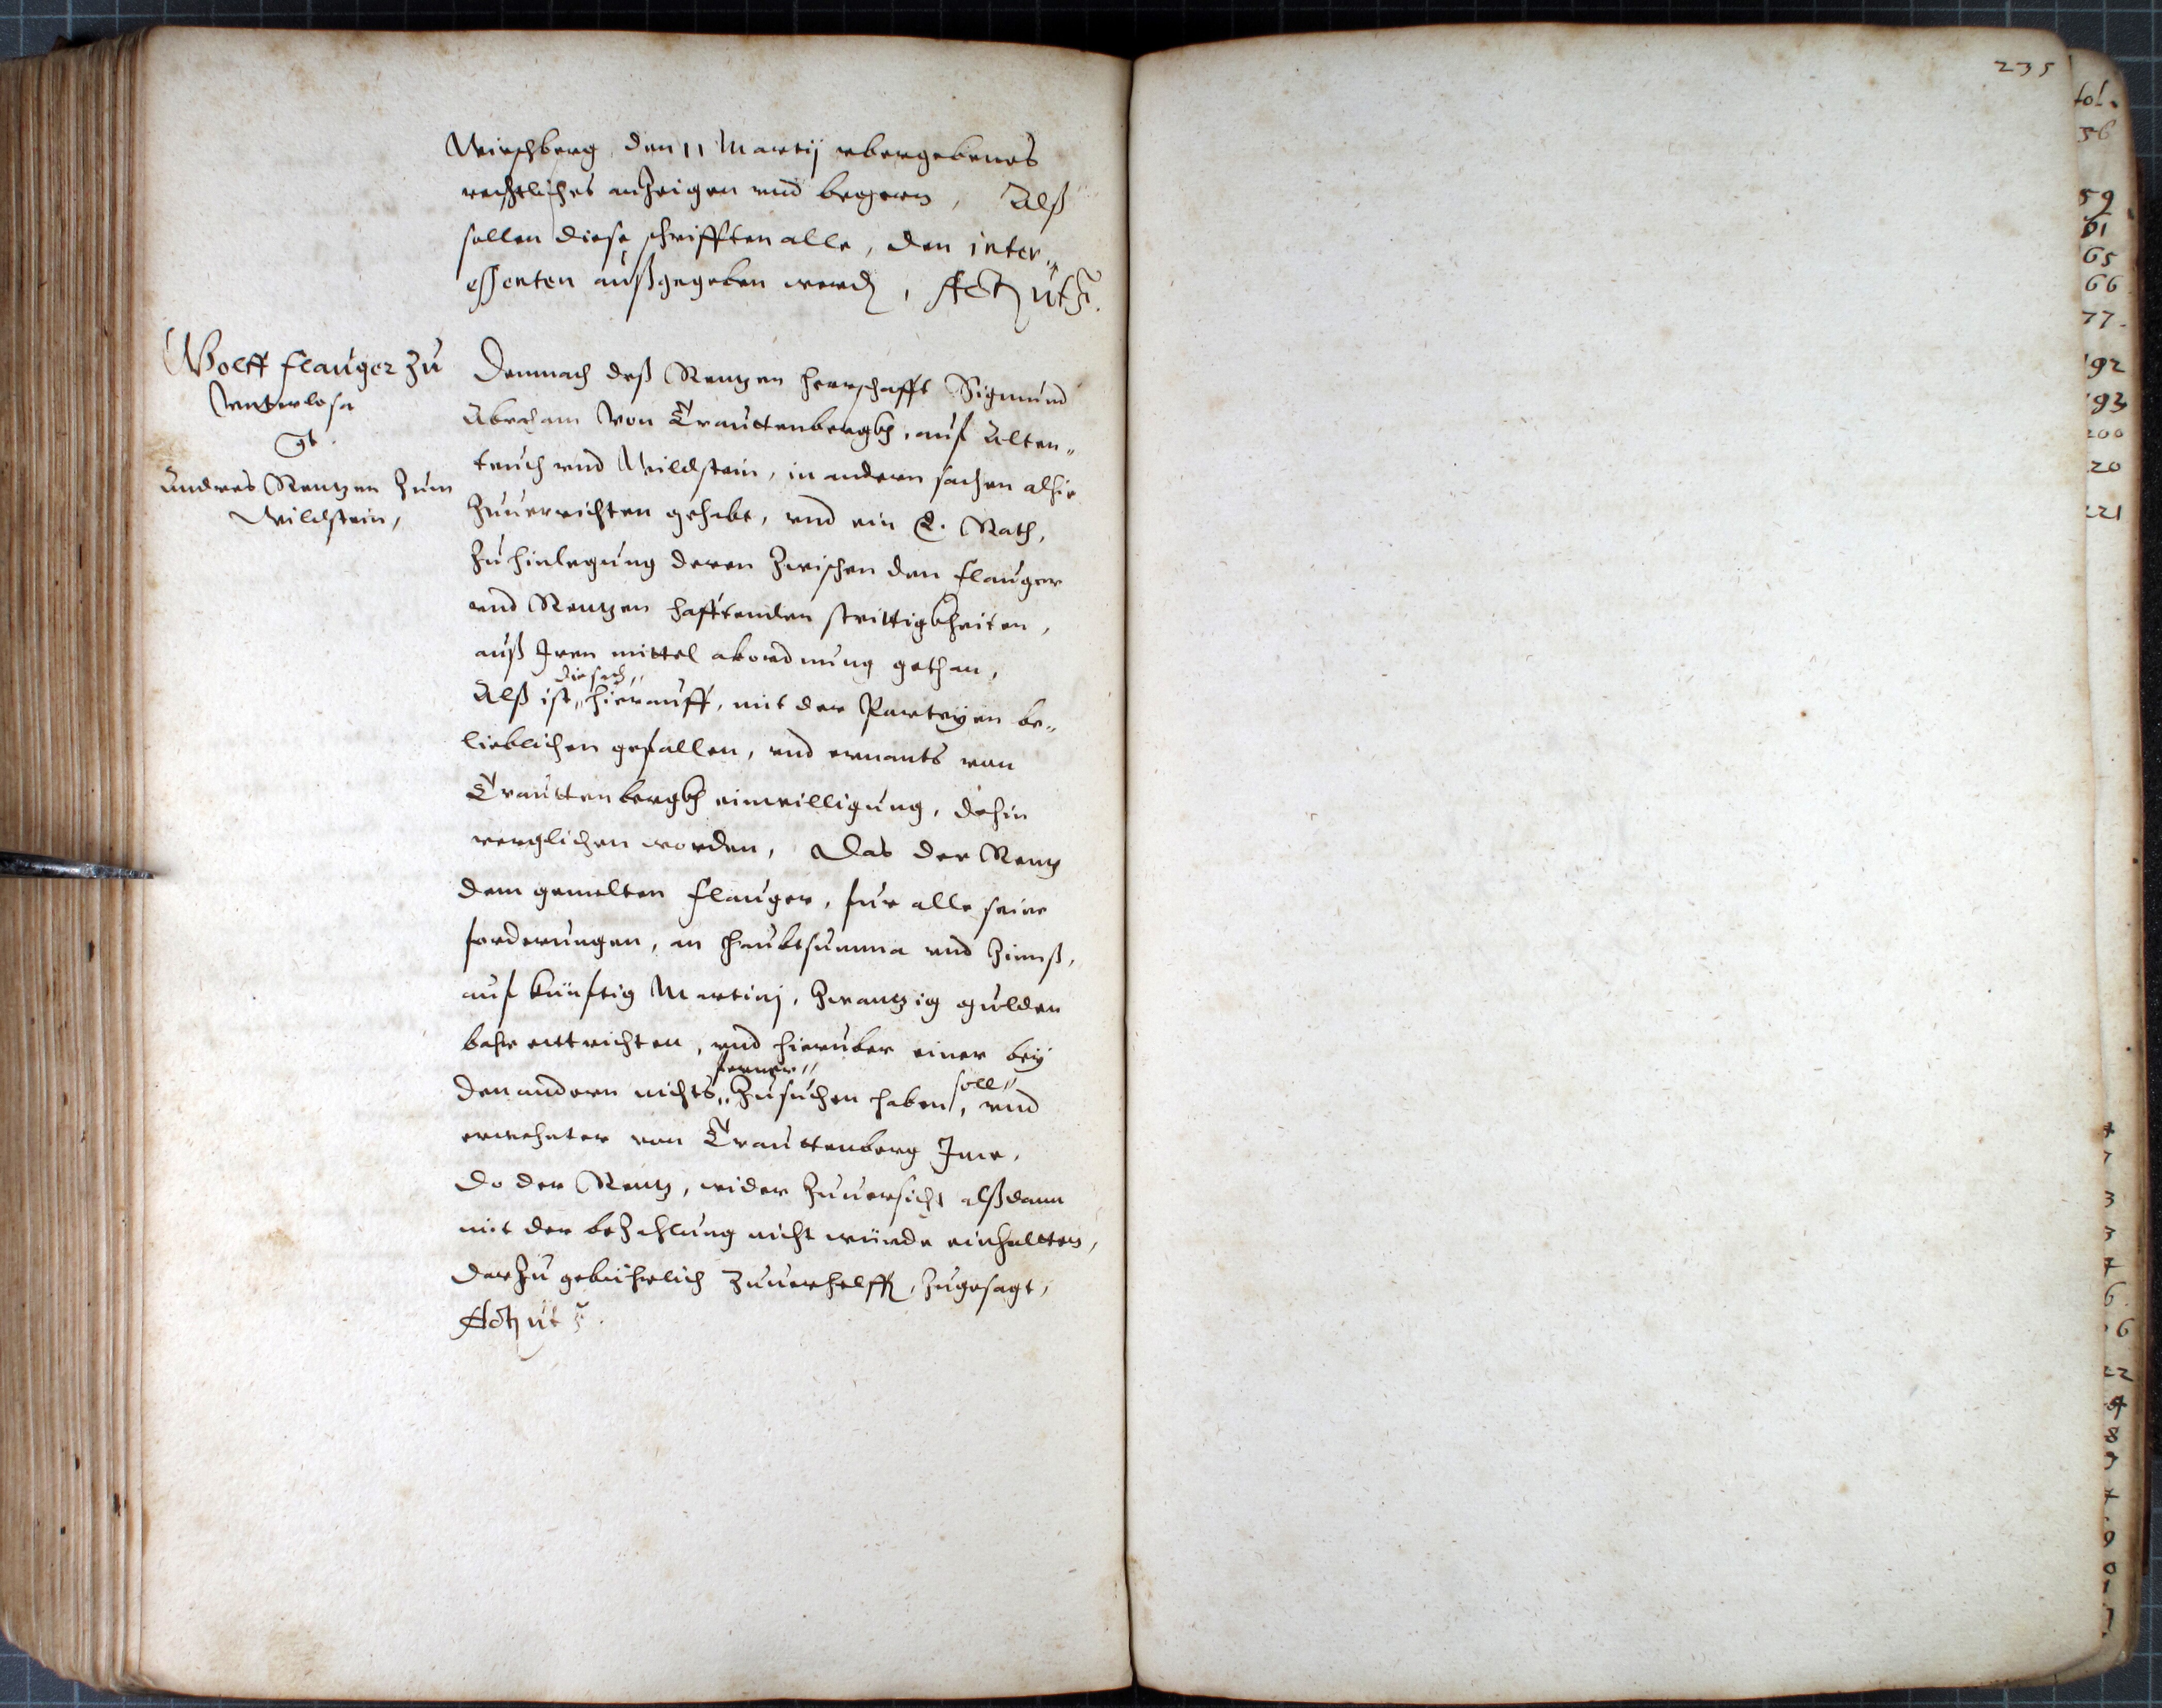 Wirschberg, den 11 Martij vbergebenes
rechtliches anzeigen vnd begern, Alß
sollen diese schrifften alle, den inter„
eßenten außgegeben werdn, Actu ut s.
Wolff Flauger zu
Vnterlosa
gt.
Andres Rentzen zum
Wildstein,
Demnach deß Rentzen herrschafft Sigmund
Abraham Von Trauttenbergkh, auf Alten„
teuch vnd Wildstein, in andern sachen alhie
zuuerrichten gehabt, vnd ein E. Rath,
zu hinlegung deren zwischen den Flauger
vnd Rentzen hafftenden strittigkheiten,
auß Iren mittel abordnung gethan,
die sach„
Alß ist„ hierauff, mit der Parteyen be„
lieblichen gefallen, vnd ernants von
Trauttenbergkh einwilligung, dohin
verglichen worden, Das der Rentz
dem gemelten Flauger, fur alle seine
forderungen, an haubtsumma vnd Zinnß,
auf künftig Martinj, zwantzig gulden
bahr entrichten, vnd hieruber einer bey
ferner„ soll„
den andern nichts„ zusuchen haben, vnd
erwehnter von Trauttenberg Ime,
do der Rentz, wider zuuersicht alßdann
mit der bezahlung nicht würde einhaltten,
darzu gebührlich zuuerhelffn, zugesagt,
Actu ut s.
235
fol.
56
59
61
65
66
77.
192
193
200
20
221